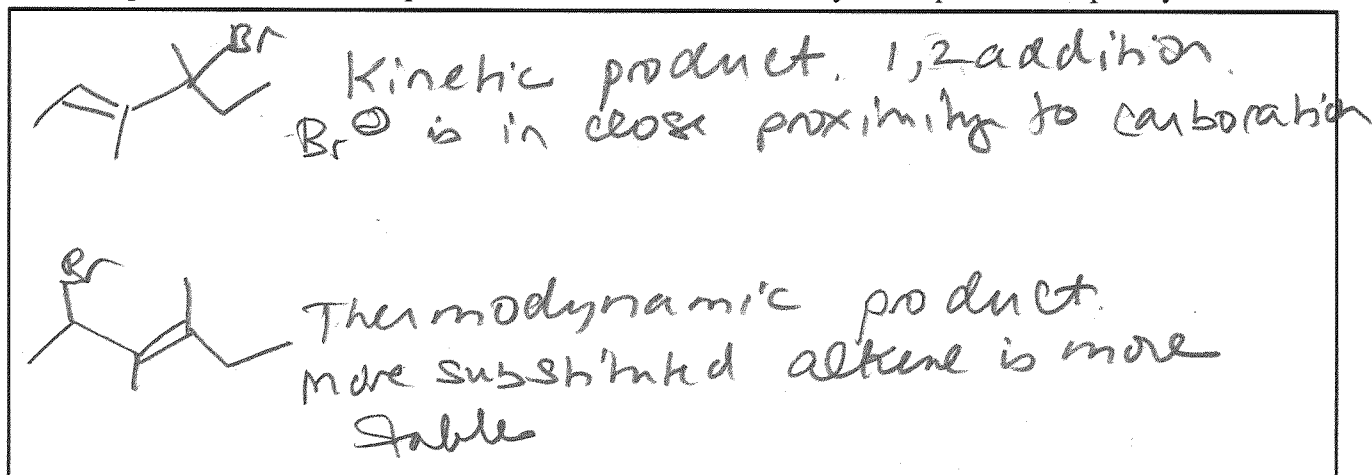 Br
Kinetic product. 1,2 addition.
Br⊖ is in close proximity to carbocation
Br
Thermodynamic product.
more substituted alkene is more
stable